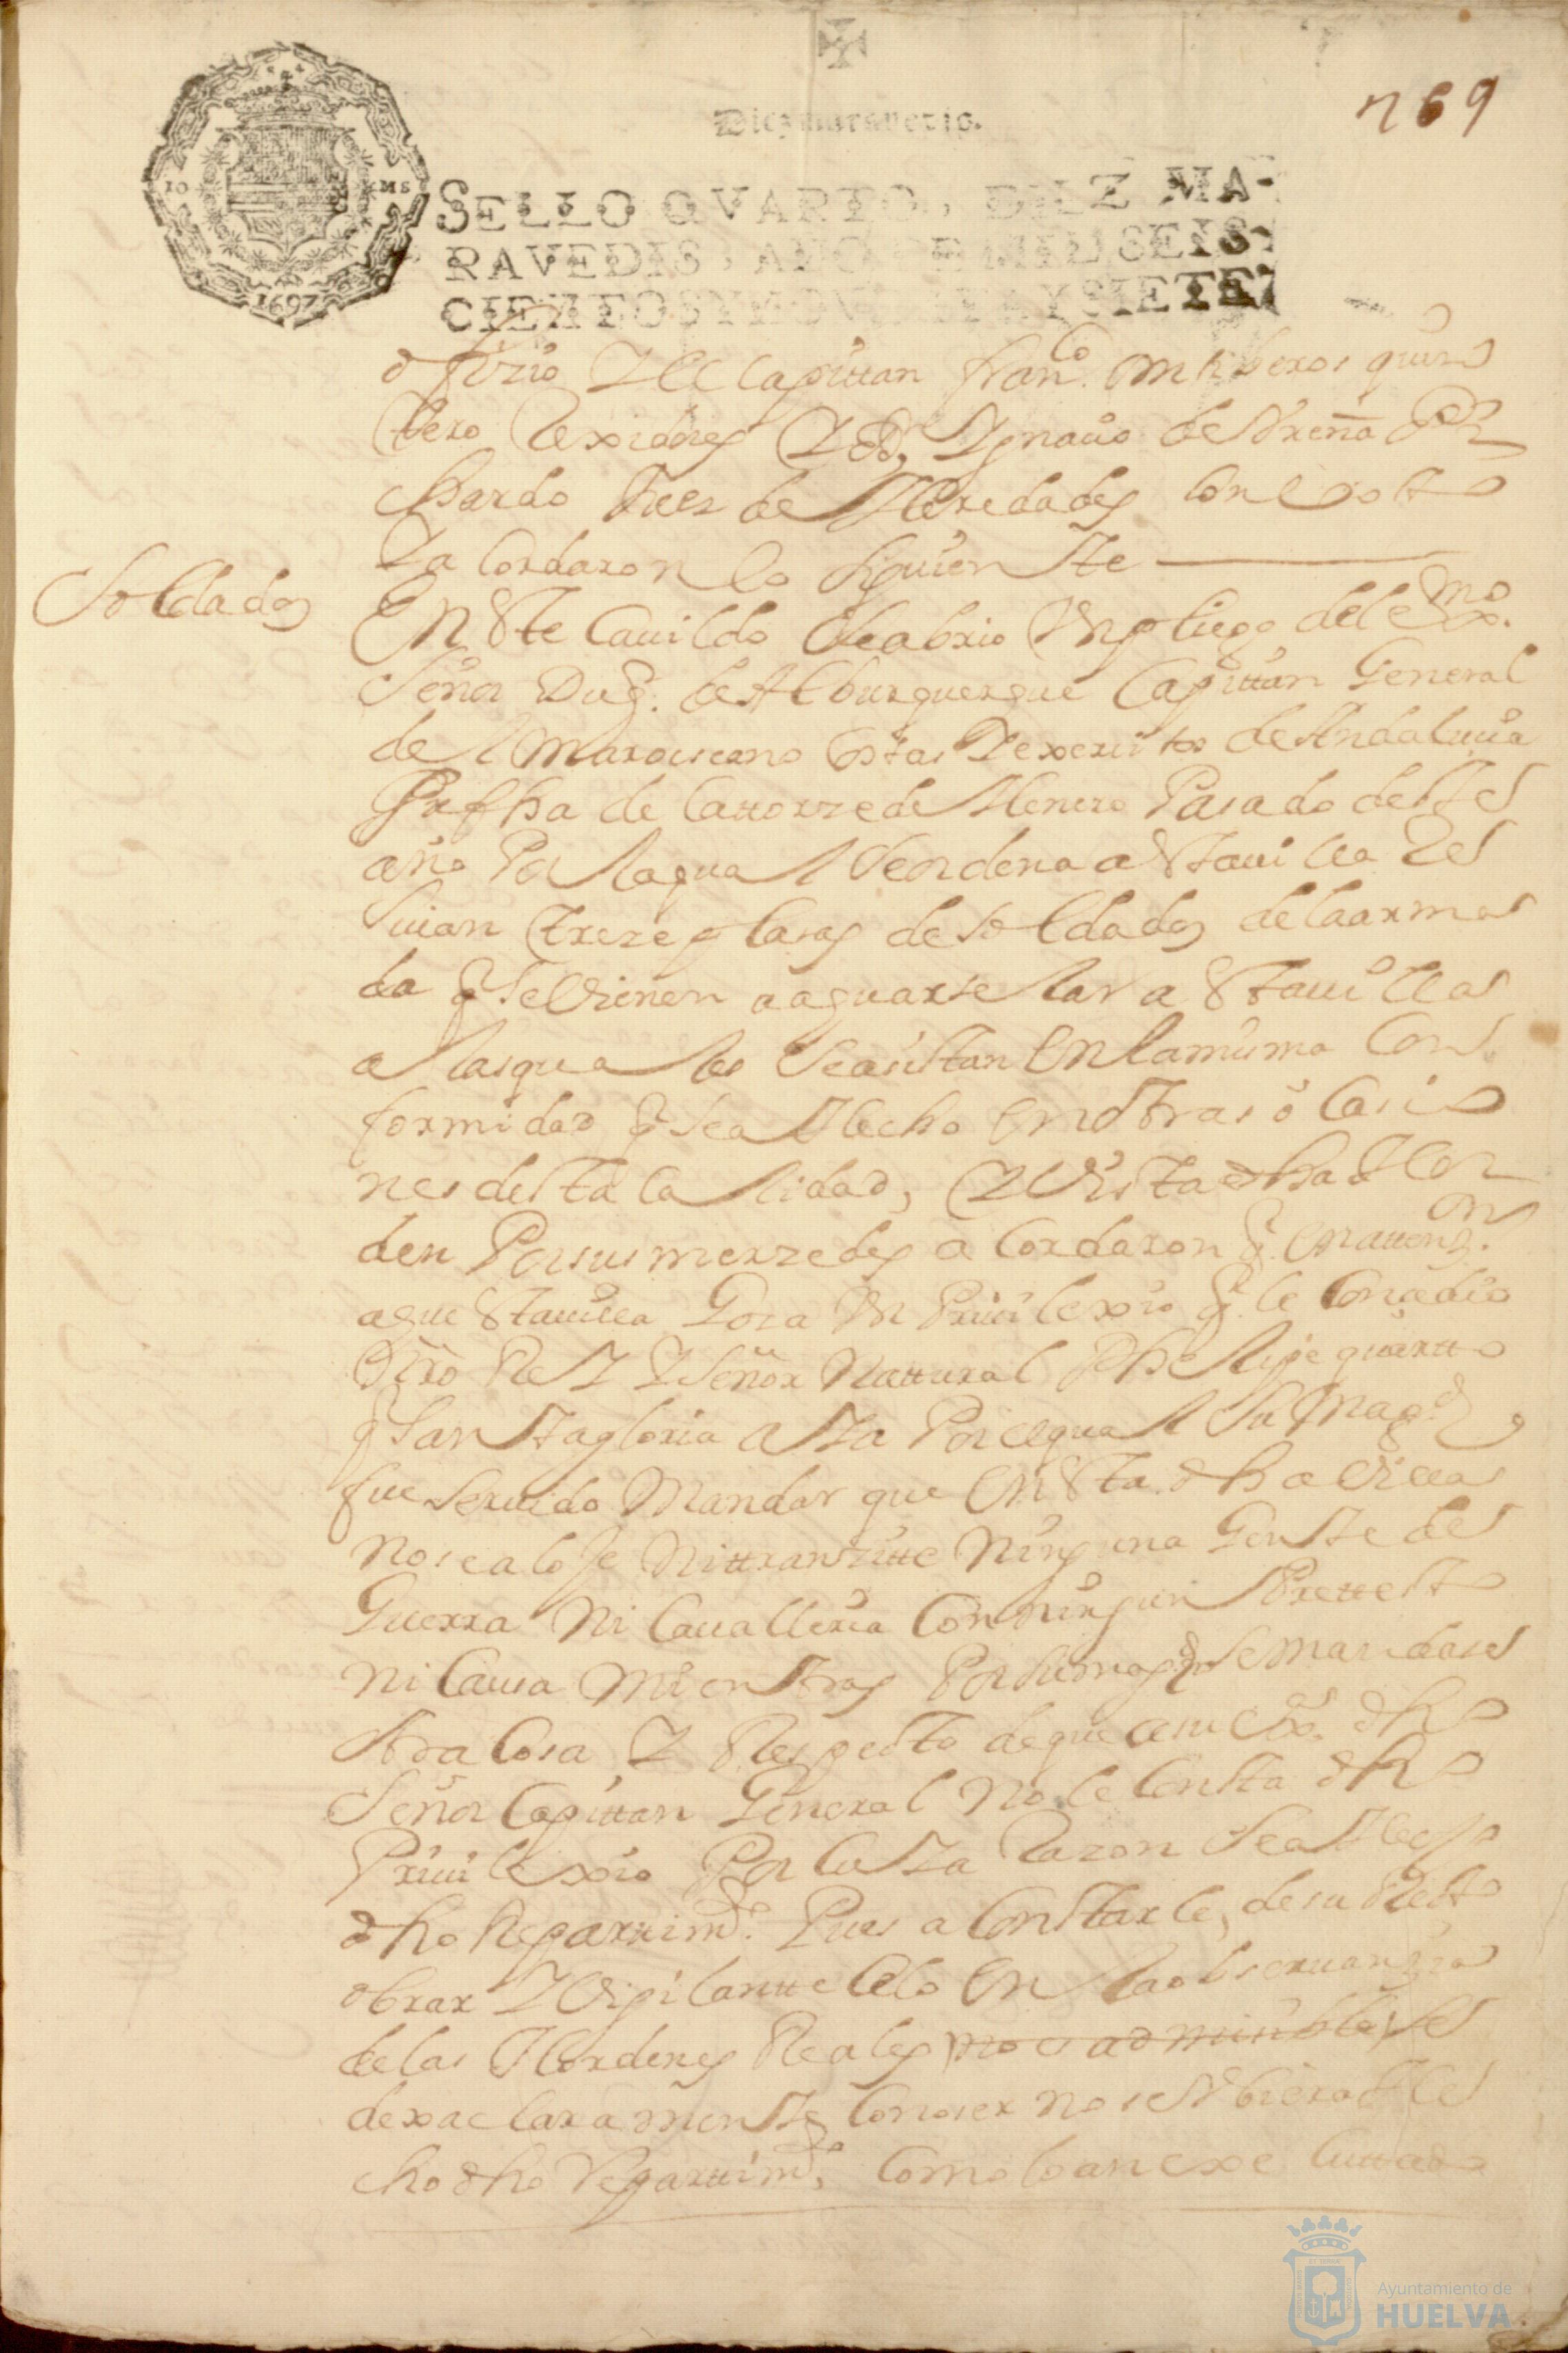 Diez maravedis.
769
SELLO QVARTO, DIEZ MA-
RAVEDIS, AÑO DE MIL SEIS-
CIENTOS Y NOVENTA Y SIETE.
1697
ofizio Y el Capittan fran.co quin
tero Rexidores Y D. Ygnacio de
chardo Juez de Heredades Con
Y acordaron lo siguiente
Soldados
En este Cauildo se abrio Vn pliego del ex.mo
Señor Duq. de Alburquerque Capittan General
del mar oceeano Costas Y exercitos de Andalucia
Su fha de Cattorze de Henero Pasado deste
año Por la qual se ordena a esta uilla Re
suian treze plasas de soldados de la arma
da q se vienen a aquartelar a esta uilla
a las quales se asistan en la misma Con
formidad q se a Hecho en otras ocasio
nes desta Calidad, Y Vista dha Hor
den Por sus merzedes acordaron q. en atten.on
a que esta uilla Gosa Vn Priuilexio q. le Consedio
Nro Rey Y Señor Nattural Phelipe quartto
q santa gloria aya Por el qual Su Mag.d
fue seruido Mandar que en esta dha Villa
no se aloje Ni ttransitte Ninguna Gente de
Guerra Ni Caualleria Con ningun Prettesto
ni Causa Mientras Por su mag.d no se mandase
otra Cosa Y Respecto de que a su ex.a dho
Señor Capittan General No le Consta dho
Priuilexio Por Cuya Razon se a Hecho
dho Reparttim.to Pues a Constarle, de su Recto
obrar Y Vigilantte Celo en la obseruanzia
de las Hordenes Reales se
dexa claramente Conoser no se Vbiera He
cho dho Reparttim.to Como lo an exe Cuttado
Ayuntamiento de
HUELVA